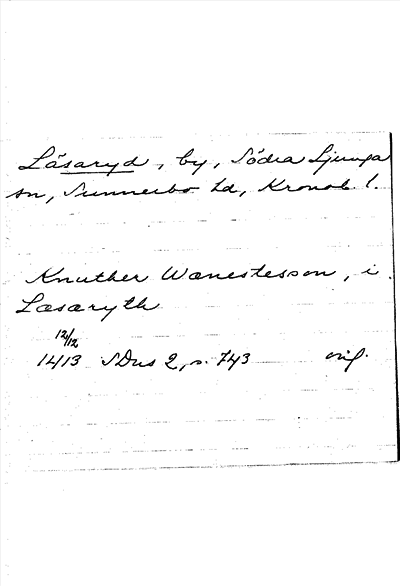 Låsaryd, by, Södra Ljunga
sn, Sunnerbo hd, Kronob l.
Knuther Wænestesson, i
Læsaryth
12/12
1413 SDns 2, s. 743 orig.